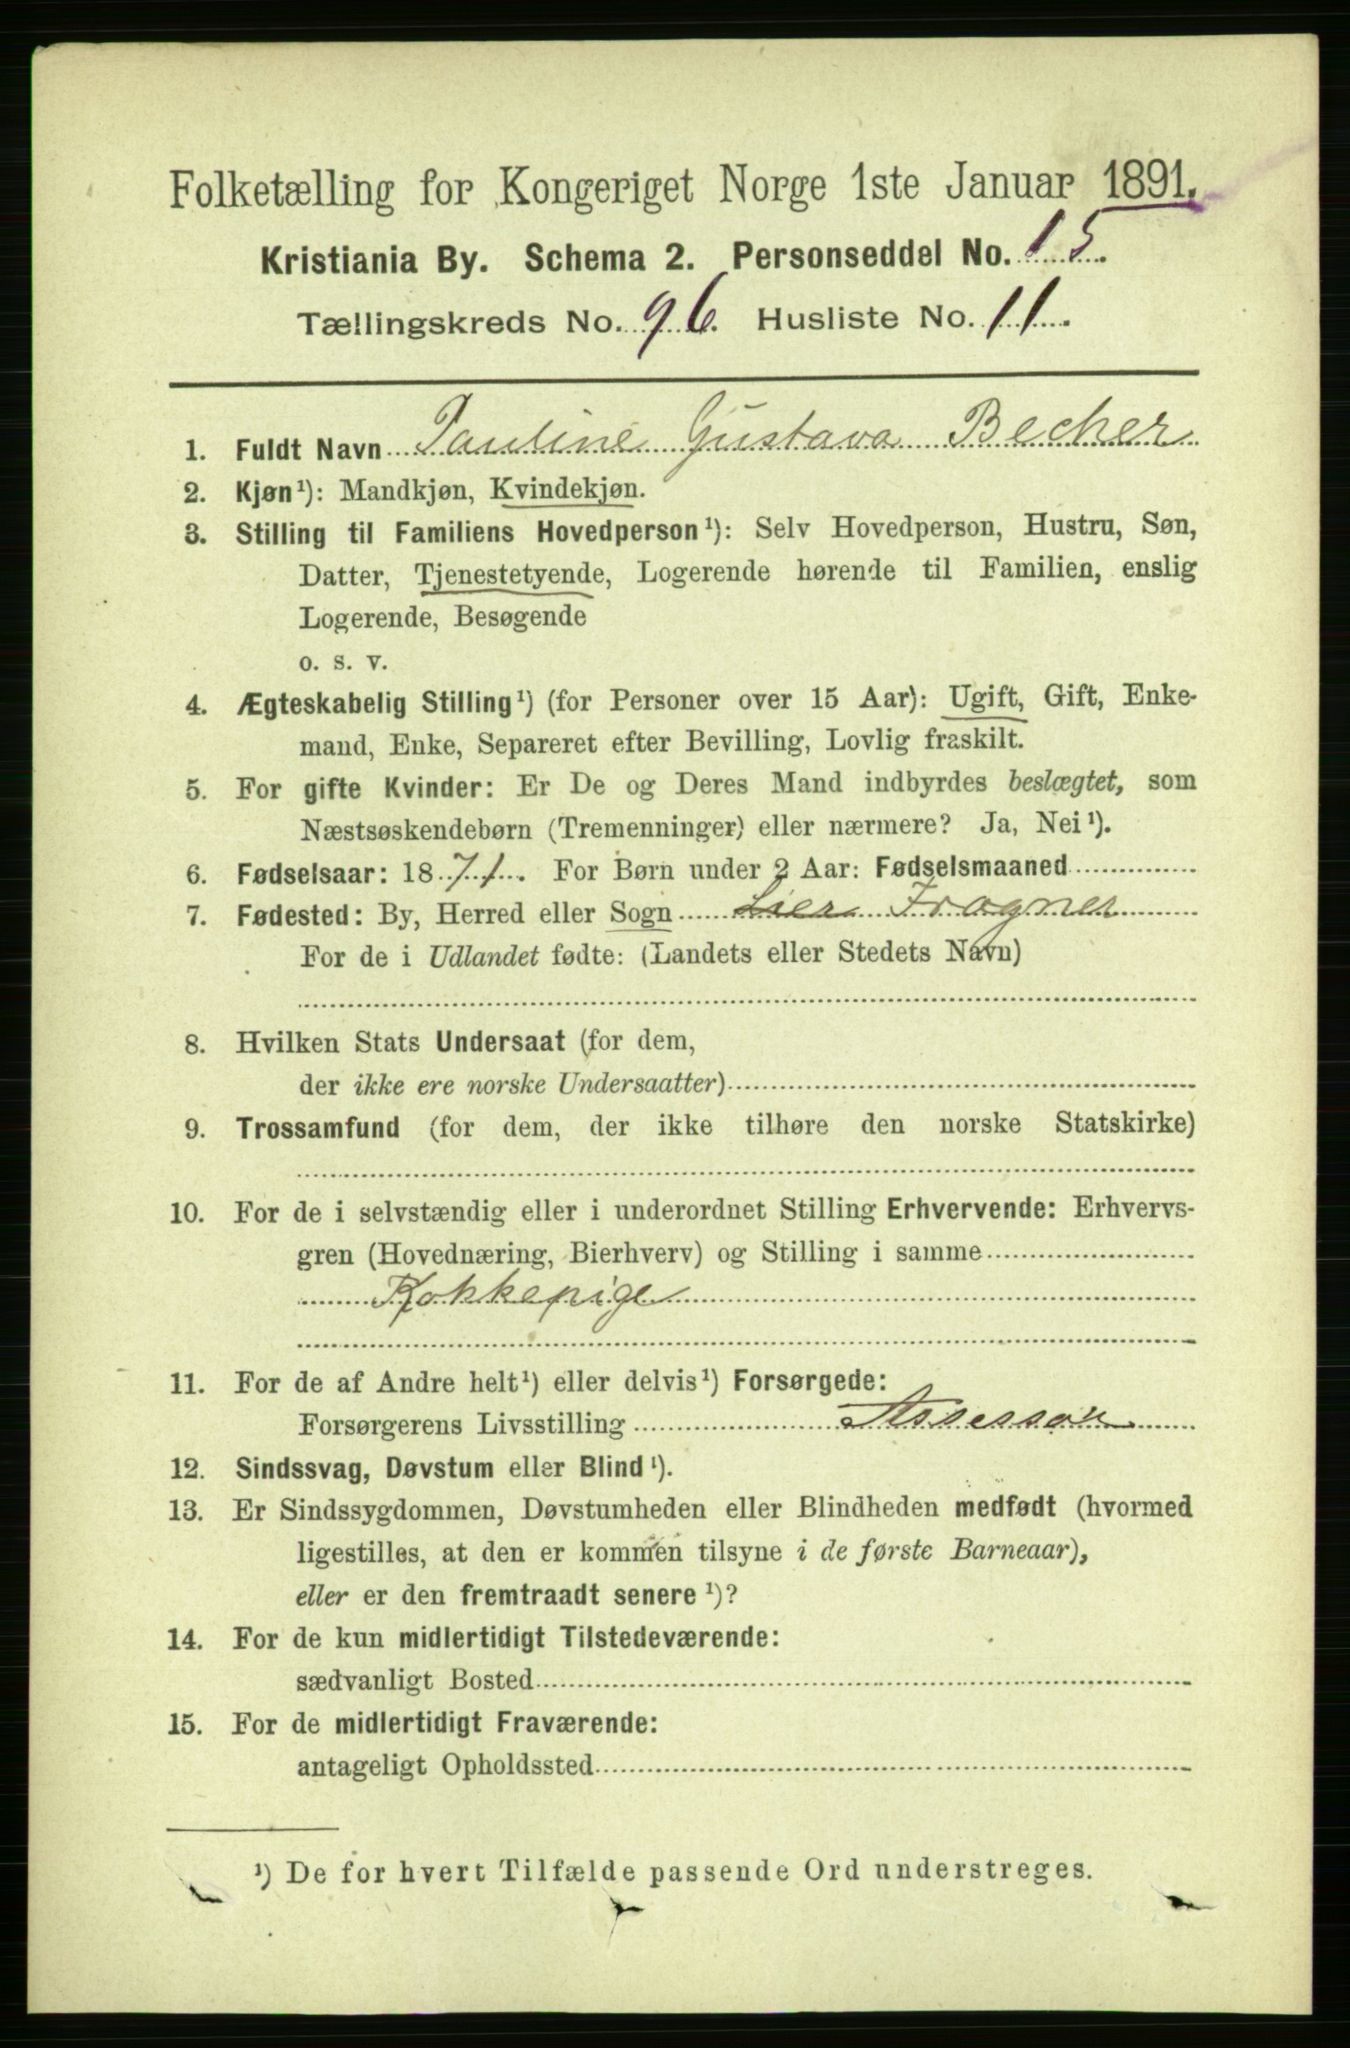 Folketælling for Kongeriget Norge 1ste Januar 1891.
Kristiania By. Schema 2. Personseddel No. 15.
Tællingskreds No. 96. Husliste No. 11.
1. Fuldt Navn Pauline Gustava Becher
2. Kjøn¹): Mandkjøn, Kvindekjøn.
3. Stilling til Familiens Hovedperson¹): Selv Hovedperson, Hustru, Søn,
Datter, Tjenestetyende, Logerende hørende til Familien, enslig
Logerende, Besøgende
o. s. v.
4. Ægteskabelig Stilling¹) (for Personer over 15 Aar): Ugift, Gift, Enke-
mand, Enke, Separeret efter Bevilling, Lovlig fraskilt.
5. For gifte Kvinder: Er De og Deres Mand indbyrdes beslægtet, som
Næstsøskendebørn (Tremenninger) eller nærmere? Ja, Nei¹).
6. Fødselsaar: 1871. For Børn under 2 Aar: Fødselsmaaned
7. Fødested: By, Herred eller Sogn Lier Frogner
For de i Udlandet fødte: (Landets eller Stedets Navn)
8. Hvilken Stats Undersaat (for dem,
der ikke ere norske Undersaatter)
9. Trossamfund (for dem, der ikke tilhøre den norske Statskirke)
10. For de i selvstændig eller i underordnet Stilling Erhvervende: Erhvervs-
gren (Hovednæring, Bierhverv) og Stilling i samme
Kokkepige
11. For de af Andre helt¹) eller delvis¹) Forsørgede:
Forsørgerens Livsstilling Assessor
12. Sindssvag, Døvstum eller Blind¹).
13. Er Sindssygdommen, Døvstumheden eller Blindheden medfødt (hvormed
ligestilles, at den er kommen tilsyne i de første Barneaar),
eller er den fremtraadt senere¹)?
14. For de kun midlertidigt Tilstedeværende:
sædvanligt Bosted
15. For de midlertidigt Fraværende:
antageligt Opholdssted
¹) De for hvert Tilfælde passende Ord understreges.